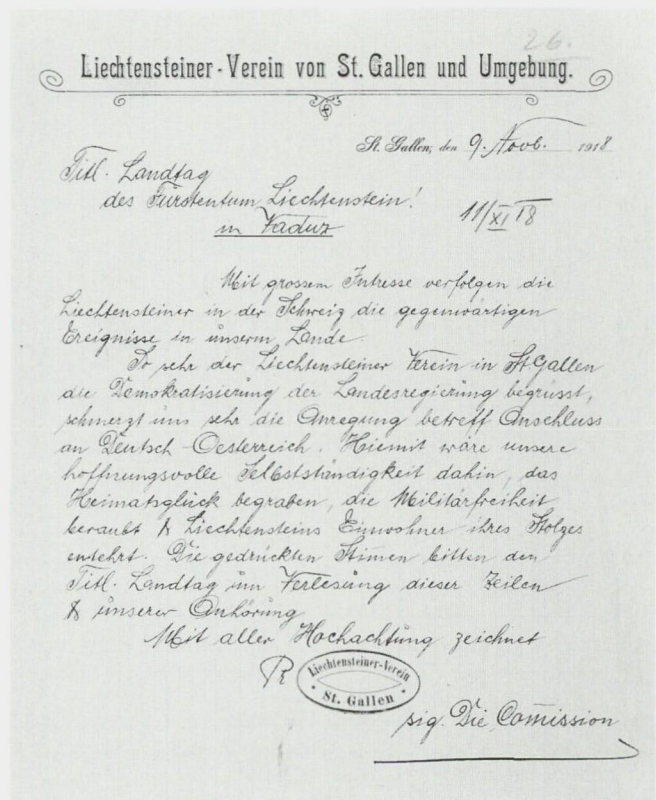 26.
Liechtensteiner-Verein von St. Gallen und Umgebung.
St. Gallen, den 9. Novb. 1918
Titl. Landtag
des Fürstentum Liechtenstein!
in Vaduz
11/XI 18
Mit grossem Intresse verfolgen die
Liechtensteiner in der Schweiz die gegenwärtigen
Ereignisse in unserm Lande
So sehr der Liechtensteiner Verein in St Gallen
die Demokratisierung der Landesregierung begrüsst,
schmerzt uns sehr die Anregung betreff Anschluss
an Deutsch-Oesterreich. Hiemit wäre unsere
hoffnungsvolle Selbstständigkeit dahin, das
Heimatsglück begraben, die Militärfreiheit
beraubt & Liechtensteins Einwohner ihres Stolzes
entehrt. Die gedrückten Stimen bitten den
Titl. Landtag um Verlesung dieser Zeilen
& unserer Anhörung
Mit aller Hochachtung zeichnet
Liechtensteiner-Verein
St. Gallen
sig. Die Comission